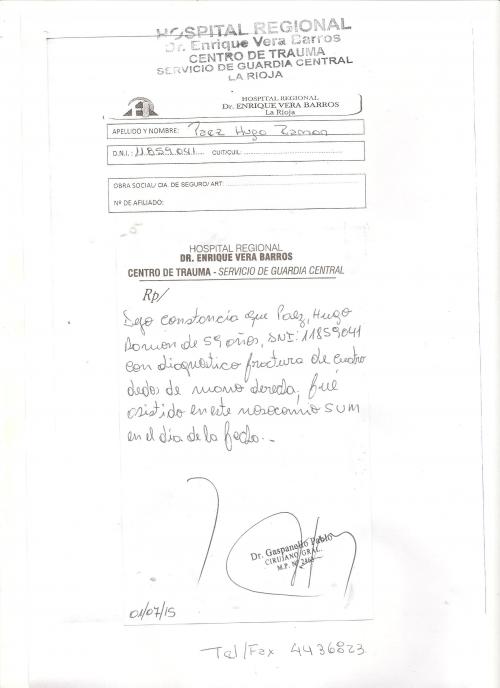 HOSPITAL REGIONAL
Dr. Enrique Vera Barros
CENTRO DE TRAUMA
SERVICIO DE GUARDIA CENTRAL
LA RIOJA
HOSPITAL REGIONAL
Dr. ENRIQUE VERA BARROS
La Rioja
APELLIDO Y NOMBRE: Paez Hugo Ramon
D.N.I.: 11859041 CUIT/CUIL:
OBRA SOCIAL/ CIA. DE SEGURO/ ART.
Nº DE AFILIADO:
HOSPITAL REGIONAL
DR. ENRIQUE VERA BARROS
CENTRO DE TRAUMA - SERVICIO DE GUARDIA CENTRAL
Rp/
Dejo constancia que Paez, Hugo
Ramon de 59 años, DNI: 11859041
con diagnostico fractura de cuatro
dedos de mano derecha, fué
asistido en este nosocomio SUM
en el dia de la fecha.-
Dr. Gaspanello Pablo
CIRUJANO GRAL.
M.P. Nº
01/07/15
Tel/Fax 4436823